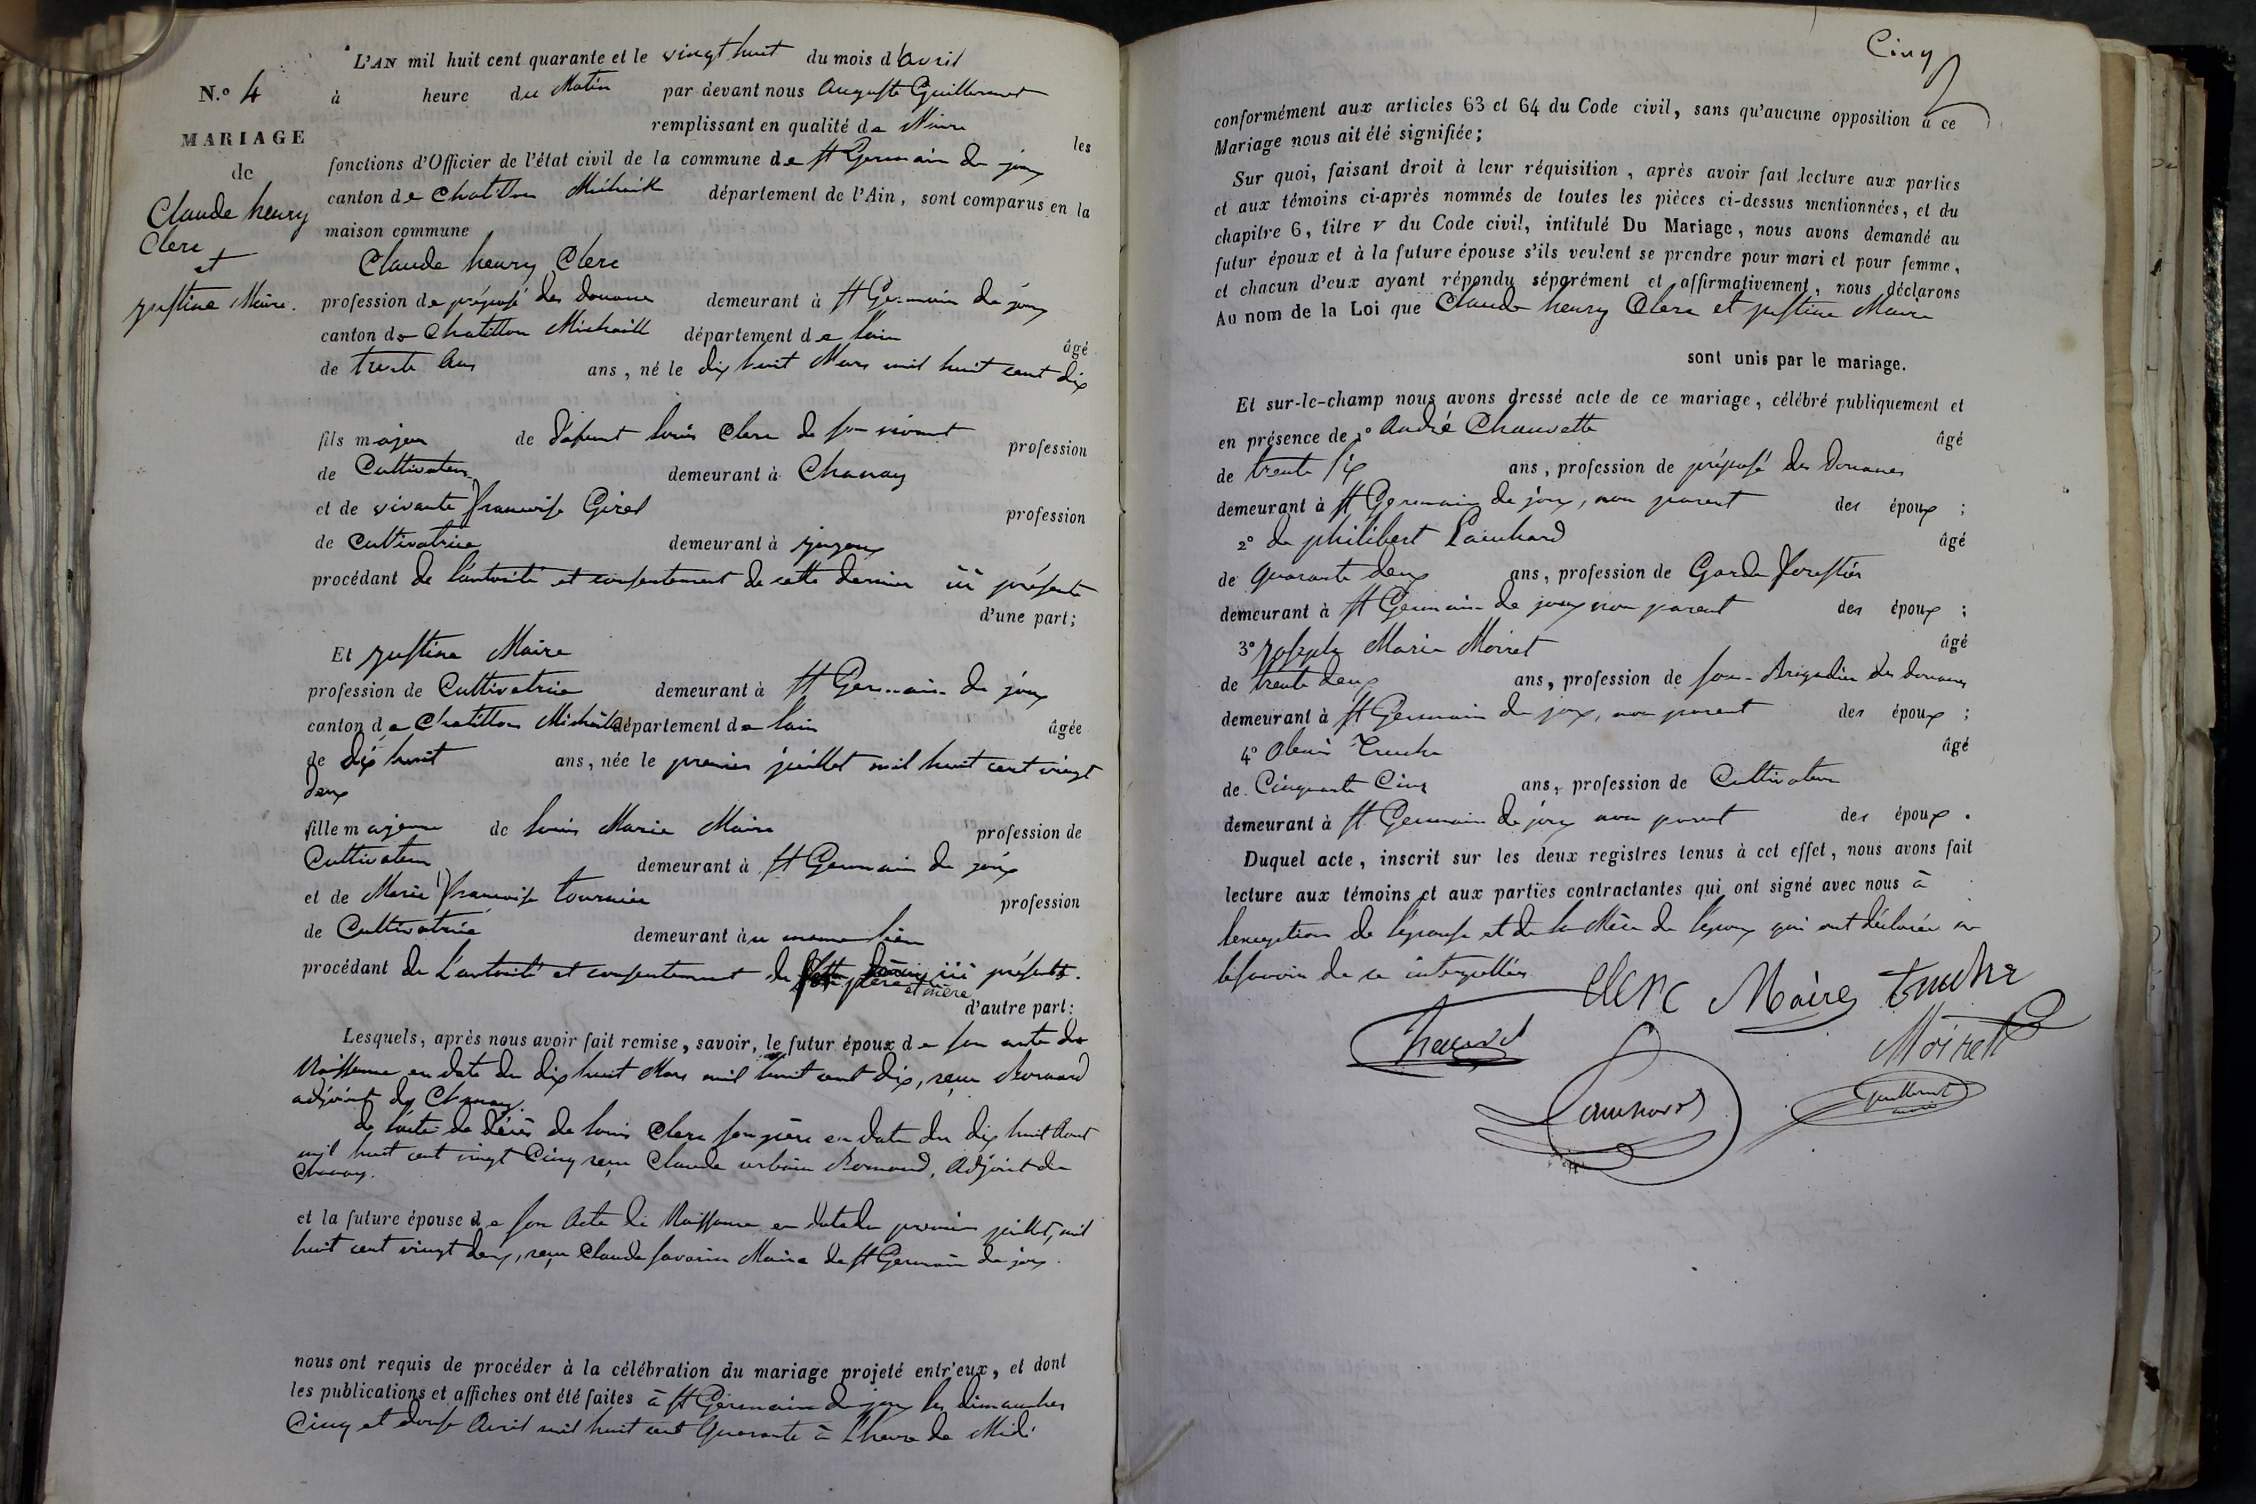 L'AN mil huit cent quarante et le vingt huit du mois d'avril
N.° 4 à heure du Matin par devant nous Auguste Guillermet
remplissant en qualité de Maire les
MARIAGE
fonctions d'Officier de l'état civil de la commune de St Germain de joux
de
canton de Chatillon Michaille département de l'Ain, sont comparus en la
Claude henry
maison commune
Clerc
et
Claude henry Clerc
justine Maire.
profession de préposé des douanes demeurant à St Germain de joux
canton de Chatillon Michaille département de l'ain âgé
de trente ans ans, né le dix huit Mars mil huit cent dix
fils majeur de défunt louis Clerc de son vivant profession
de Cultivateur demeurant à Chanay
et de vivante françoise Girel profession
de Cultivatrice demeurant à
procédant de l'autorité et consentement de cette dernière ici présente
d'une part;
Et justine Maire
profession de Cultivatrice demeurant à St Germain de joux
canton de Chatillon Michaille département de l'ain âgée
de dix huit ans, née le premier juillet mil huit cent vingt
deux
fille majeure de louis Marie Maire profession de
Cultivateur demeurant à St Germain de joux
et de Marie françoise tournier profession
de Cultivatrice demeurant au meme lieu
procédant de L'autorité et consentement de ses père et mère ici présents.
d'autre part:
Lesquels, après nous avoir fait remise, savoir, le futur époux de son acte de
Naissance en date du dix huit Mars mil huit cent dix, reçu Bornard
adjoint de Chanay.
de l'acte de décès de louis Clerc son père en date du dix huit Aout
mil huit cent vingt Cinq reçu Claude urbain Bornard, Adjoint de
Chanay.
et la future épouse de son Acte de Naissance en date du premier juillet, mil
huit cent vingt deux, reçu Claude favorin Maire de St Germain de joux.
nous ont requis de procéder à la célébration du mariage projeté entr'eux, et dont
les publications et affiches ont été faites à St Germain de joux les dimanches
Cinq et douze Avril mil huit cent Quarante à l'heure de Midi
Cinq
conformément aux articles 63 et 64 du Code civil, sans qu'aucune opposition à ce
Mariage nous ait été signifiée;
Sur quoi, faisant droit à leur réquisition, après avoir fait lecture aux parties
et aux témoins ci-après nommés de toutes les pièces ci-dessus mentionnées, et du
chapitre 6, titre v du Code civil, intitulé Du Mariage, nous avons demandé au
futur époux et à la future épouse s'ils veulent se prendre pour mari et pour femme,
et chacun d'eux ayant répondu séparément et affirmativement, nous déclarons
Au nom de la Loi que Claude henry Clerc et justine Maire
sont unis par le mariage.
Et sur-le-champ nous avons dressé acte de ce mariage, célébré publiquement et
en présence de 1° André Chauvette âgé
de trente six ans, profession de préposé des Douanes
demeurant à St Germain de joux, non parent des époux;
2° de philibert Painhard âgé
de Quarante deux ans, profession de Garde forestier
demeurant à St Germain de joux non parent des époux;
3° joseph Marie Moiret âgé
de trente deux ans, profession de sous-Brigadier des douanes
demeurant à St Germain de joux, non parent des époux;
4° Truche âgé
de Cinquante Cinq ans, profession de Cultivateur
demeurant à St Germain de joux non parent des époux.
Duquel acte, inscrit sur les deux registres tenus à cet effet, nous avons fait
lecture aux témoins et aux parties contractantes qui ont signé avec nous à
lexception de l'épouse et de la Mère de l'époux qui ont déclarée ne
le savoir de ce interpellées
Clerc Maire truche
Moiret
Guillermet